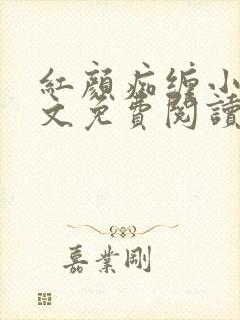 紅顏痴纏小
文免費閱讀
嘉業剛